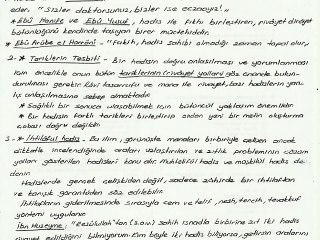 eder. "Sizler doktorsunuz, bizler ise eczacıyız!"
* Ebû Hanife ve Ebû Yusuf, hadis ile fıkhı birleştiren, rivâyet dirâyet
bütünlüğünü kendinde taşıyan birer müctehiddir.
* Ebû Arûbe el Harrânî: "Fakih, hadis sahibi olmadığı zaman topal olur."
2-* Tariklerin Tesbiti - Bir hadisin doğru anlaşılması ve yorumlanması
için öncelikle onun bütün tariklerinin (rivâyet yolları) göz önünde bulun-
durulması gerekir. Râvi tasarrufu ve mana ile rivâyet, bazı hadislerin yan-
lış anlaşılmasına sebep olmaktadır.
* Sağlıklı bir sonuca ulaşabilmek için bütüncül yaklaşım önemlidir.
* Bir hadisin farklı tarikleri birleştirip ondan yeni bir metin oluşturma
çabası doğru değildir.
3-* İhtilâfül hadis - Bu ilim, görünüşte manaları birbiriyle çelişen ancak
dikkatle incelendiğinde araları uzlaştırılan ve zıtlık probleminin çözüm
yolları gösterilen hadisleri konu alır. Muhtelifül hadis ve müşkilül hadis de
denir.
Hadislerde gerçek çelişki değil, sadece zâhirde bir ihtilaftan
ve karışık görüntüden söz edilebilir.
İhtilafların giderilmesinde sırasıyla cem ve telif, nesh, tercih, tevakkuf
yöntemi uygulanır.
İbn Huzeyme: "Resûlullah'tan (s.a.v.) sahih isnadla birbirine zıt iki hadis
rivâyet edildiğini bilmiyorum. Kim böyle iki hadis biliyorsa, getirsin aralarını